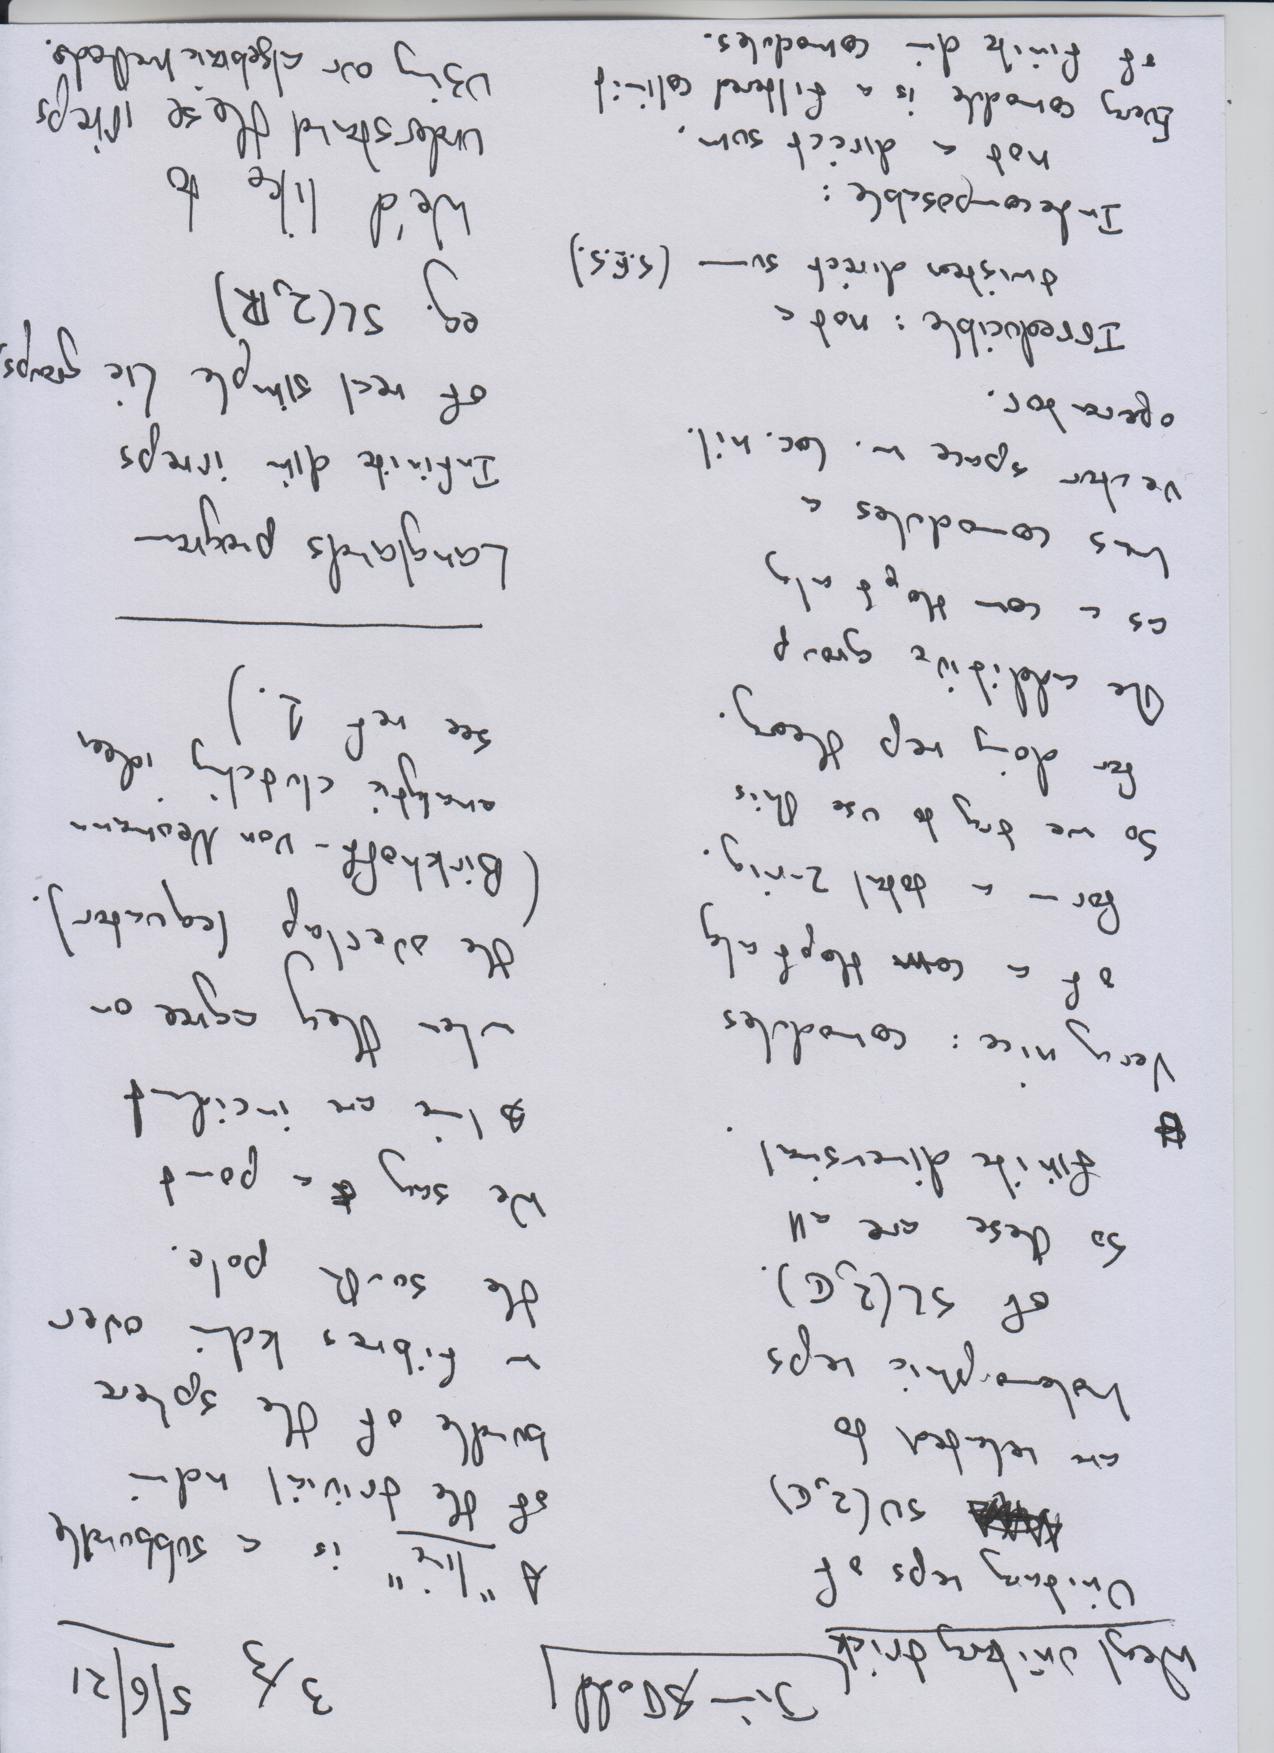 5/6/21
3/3
Weyl unitary trick
Unitary reps of
SU(2,C)
are related to
holomorphic reps
of SL(2,C).
So these are all
finite dimensional.
Very nice: comodules
of a com Hopf alg
form a total 2-rig.
So we try to use this
for doing rep theory.
The additive group
as a com Hopf alg
has comodules a
vector space w. loc. nil.
operator.
Irreducible: not a
twisted direct sum (S.E.S.)
Indecomposable:
not a direct sum.
Every comodule is a filtered colimit
of finite dim comodules.
A "line" is a subbundle
of the trivial ndim
bundle of the sphere
w fibres kdim over
the south pole.
We say a point
& line are incident
when they agree on
the overlap (equator).
(Birkhoff - Von Neumann
analytic clutching idea
see ref 1.)
Langlands program
Infinite dim irreps
of real simple Lie groups,
eg. SL(2,R)
We'd like to
understand these irreps
using our algebraic methods.